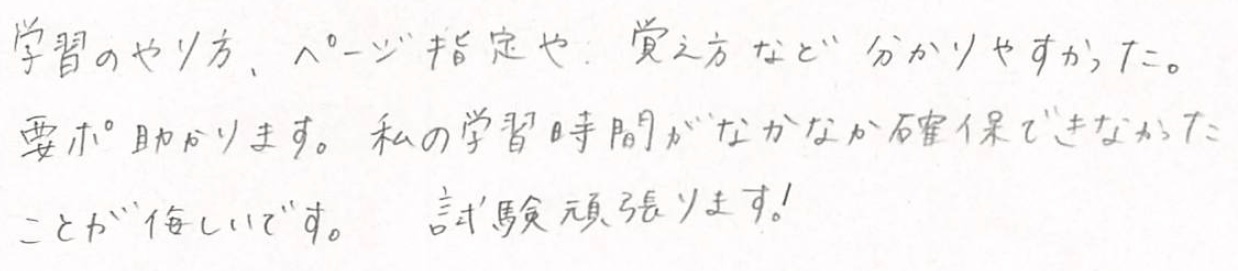 学習のやり方、ページ指定や、覚え方など分かりやすかった。
要ポ助かります。私の学習時間がなかなか確保できなかった
ことが悔しいです。 試験頑張ります!